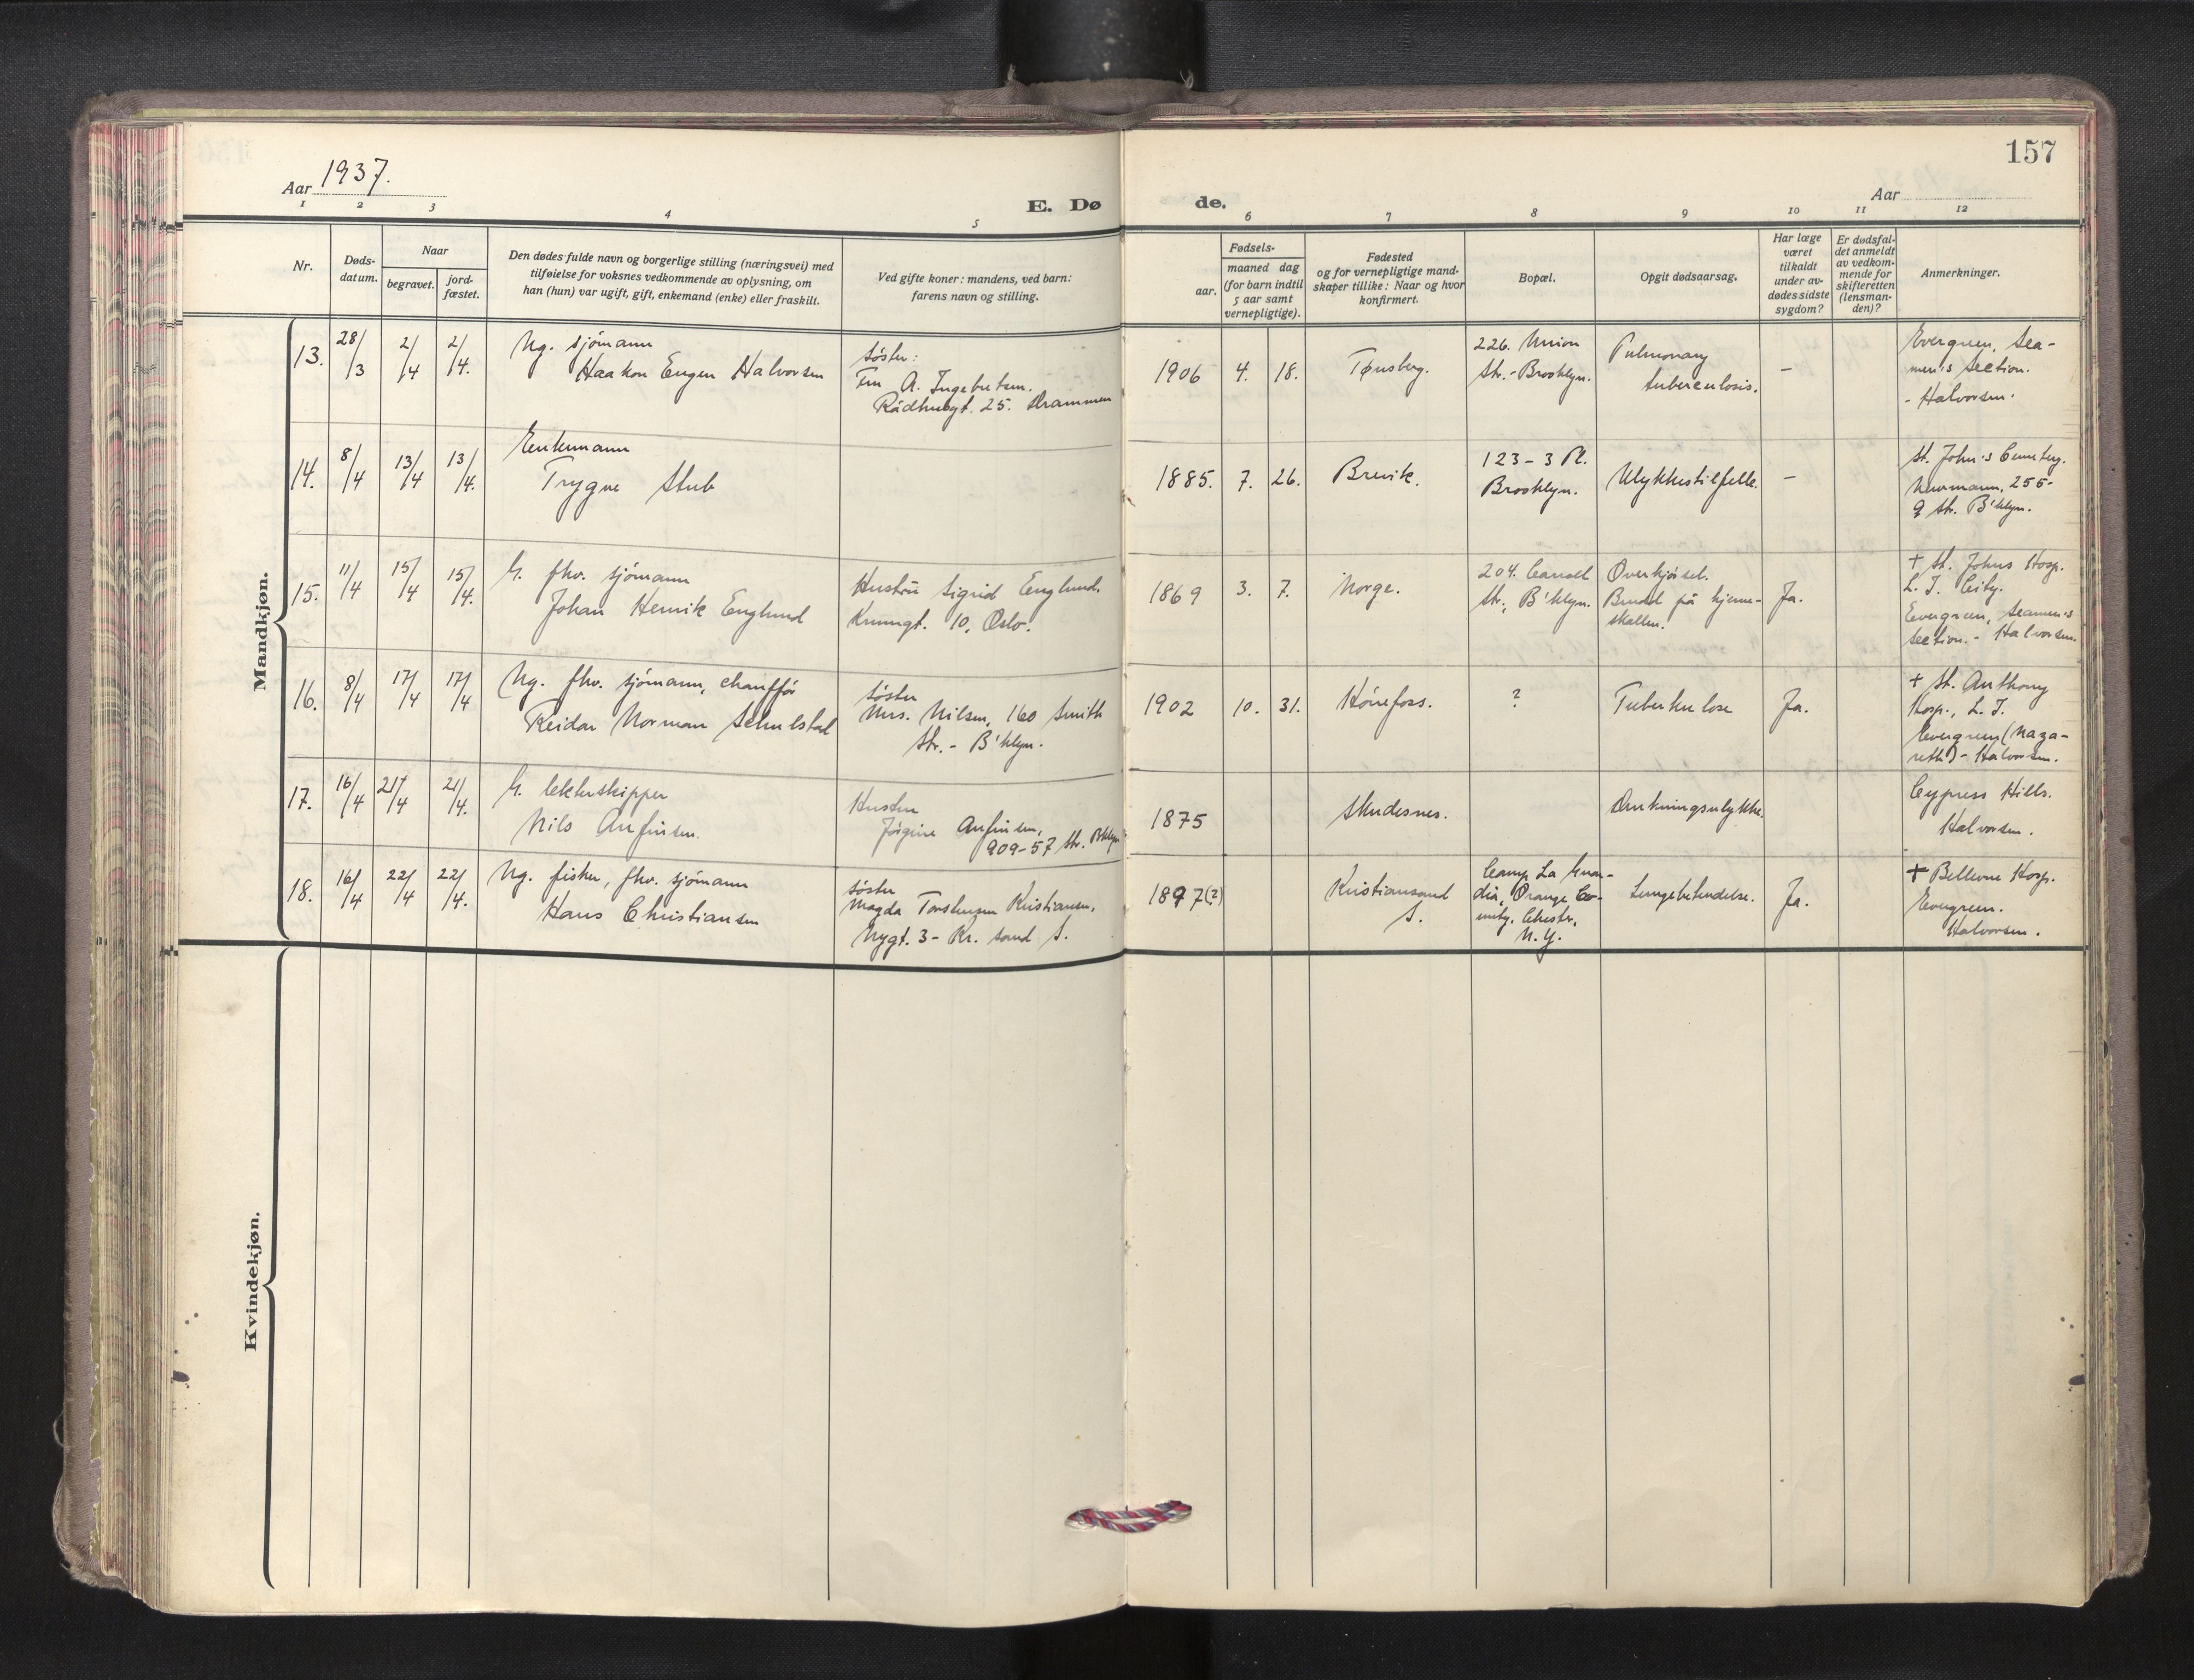 157
Aar 1937.
Aar
E. Dø de.
1 2 3 4 5 6 7 8 9 10 11 12
Nr.
Døds-
datum.
Naar
begravet.
jord-
fæstet.
Den dødes fulde navn og borgerlige stilling (næringsvei) med
tilføielse for voksnes vedkommende av oplysning, om
han (hun) var ugift, gift, enkemand (enke) eller fraskilt.
Ved gifte koner: mandens, ved barn:
farens navn og stilling.
Fødsels-
aar.
maaned dag
(for barn indtil
5 aar samt
vernepligtige).
Fødested
og for vernepligtige mand-
skaper tillike: Naar og hvor
konfirmert.
Bopæl.
Opgit dødsaarsag.
Har læge
været
tilkaldt
under av-
dødes sidste
sygdom?
Er dødsfal-
det anmeldt
av vedkom-
mende for
skifteretten
(lensman-
den)?
Anmerkninger.
Mandkjøn.
13.
28/3
2/4
2/4.
Ug. sjömann
Haakon Eugen Halvorsen
Söster:
A. Ingebretsen.
Rådhusgt. 25. Drammen
1906 4. 18.
Tønsberg.
226. Union
Str.- Brooklyn.
Pulmonary
tuberculosis.
–
Evergreen, Sea-
men's Section.
- Halvorsen.
14.
8/4
13/4
13/4.
Enkemann
Trygve Stub
1885. 7. 26.
Brevik.
123 - 3 Pl.
Brooklyn.
Ulykkestilfelle.
–
St. John's Cemetery.
Newmann, 255-
9 Str. B'klyn.
15.
11/4
15/4
15/4.
G. fhv. sjömann
Johan Henrik Englund
Hustru Sigrid Englund.
10, Oslo.
1869 3. 7.
Norge.
204. Conselt
Str., B'klyn.
Overkjörsel.
Brudd på hjerne-
skallen.
Ja.
+ St. Johns Hosp.
L. I. City.
Evergreen, Seamen's
Section. - Halvorsen.
16.
8/4
17/4
17/4
Ug. fhv. sjömann, chaufför
Reidar Norman Schulstad
Söster
Mrs. Nilsen, 160 Smith
Str. - B'klyn.
1902 10. 31.
Hönefoss.
?
Tuberkulose
Ja.
+ St. Anthony
Hosp., L. I.
Evergreen (Naza-
reth) - Halvorsen.
17.
16/4
21/4
21/4.
G. lekterskipper
Nils Anfinsen.
Hustru
Jörgine Anfinsen,
909-57 Str. Bklyn
1875
Skudesnes.
Drukningsulykke.
Cypress Hills.
Halvorsen.
18.
16/4
22/4
22/4.
Ug. fisker, fhv. sjömann
Hans Christiansen
Söster
Magda Torstensen Kristiansen,
Nygt. 3 - Kr. sand S.
1897(?)
Kristiansand
S.
Camp La Guar-
dia, Orange Co-
unty, Chestr,
N.Y.
Lungebetendelse.
Ja.
+ Bellevue Hosp.
Evergreen.
Halvorsen.
Kvindekjøn.